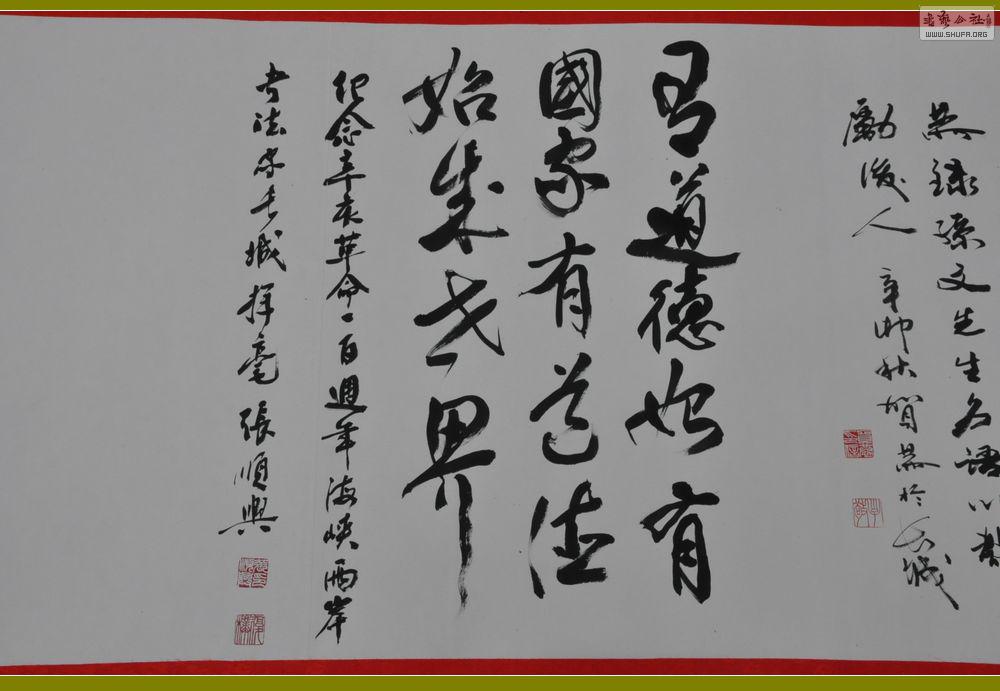 恭錄孫文先生名語以勉
勵後人 辛卯秋賀恭於長城
有道德始有
國家有道德
始成世界
紀念辛亥革命一百週年海峽兩岸
書法家長城揮毫 張順興
WWW.SHUFA.ORG